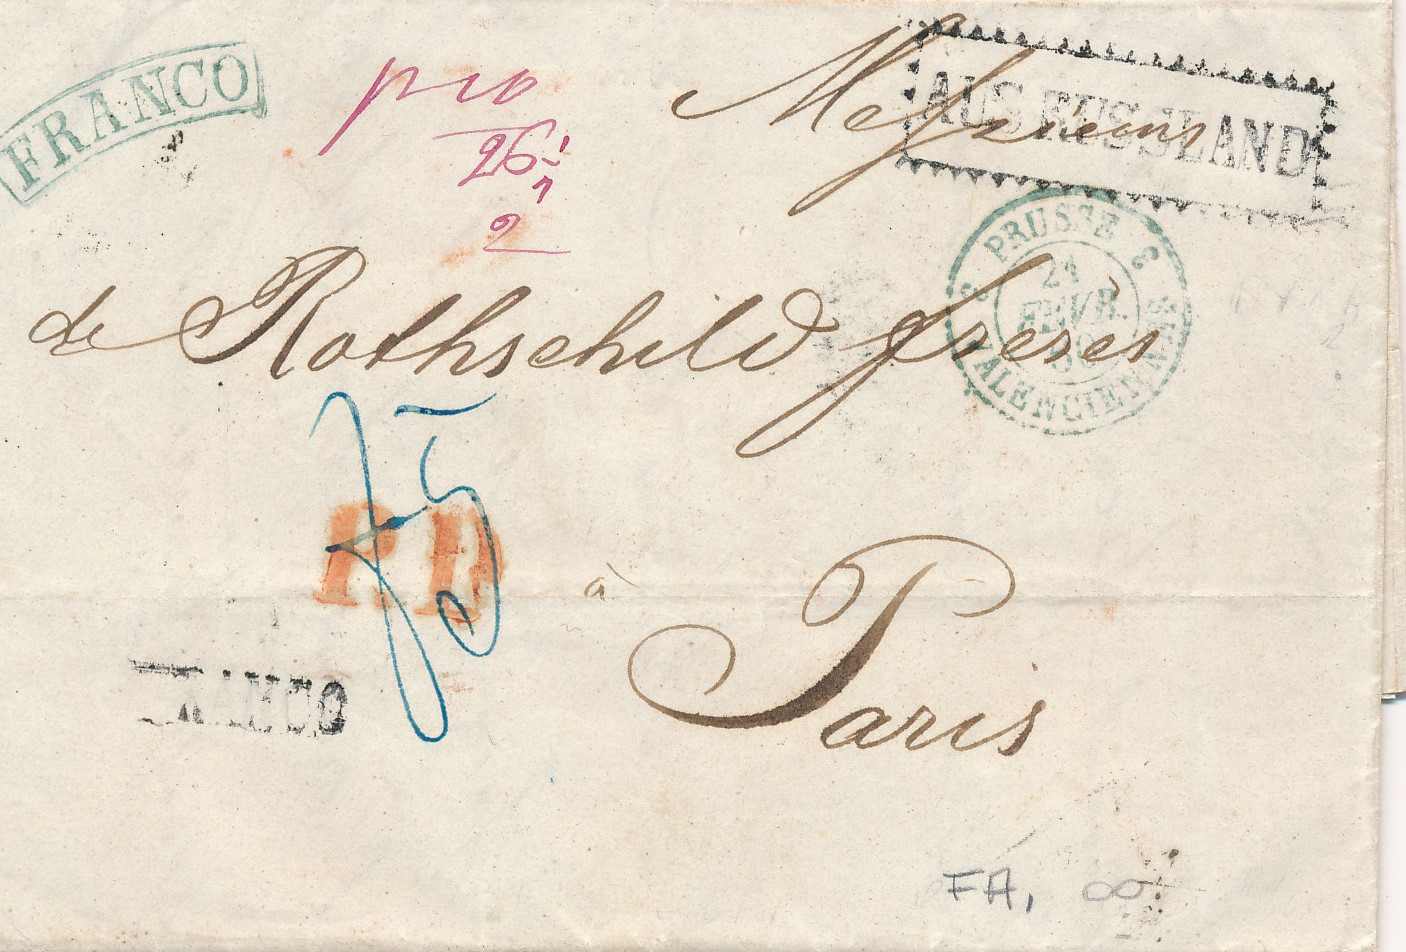 FRANCO
pro
26
2
Messieurs
AUS RUSSLAND
PRUSSE 3
21
FEVR.
3 VALENCIENNES
de Rothschild frères
P.D.
à
Paris
FRANCO
FA,